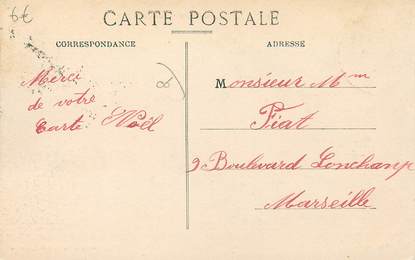 6€
CARTE POSTALE
CORRESPONDANCE
ADRESSE
Merci
de votre
Carte Noël
Monsieur Mm
Fiat
9 Boulevard Lonchamp
Marseille